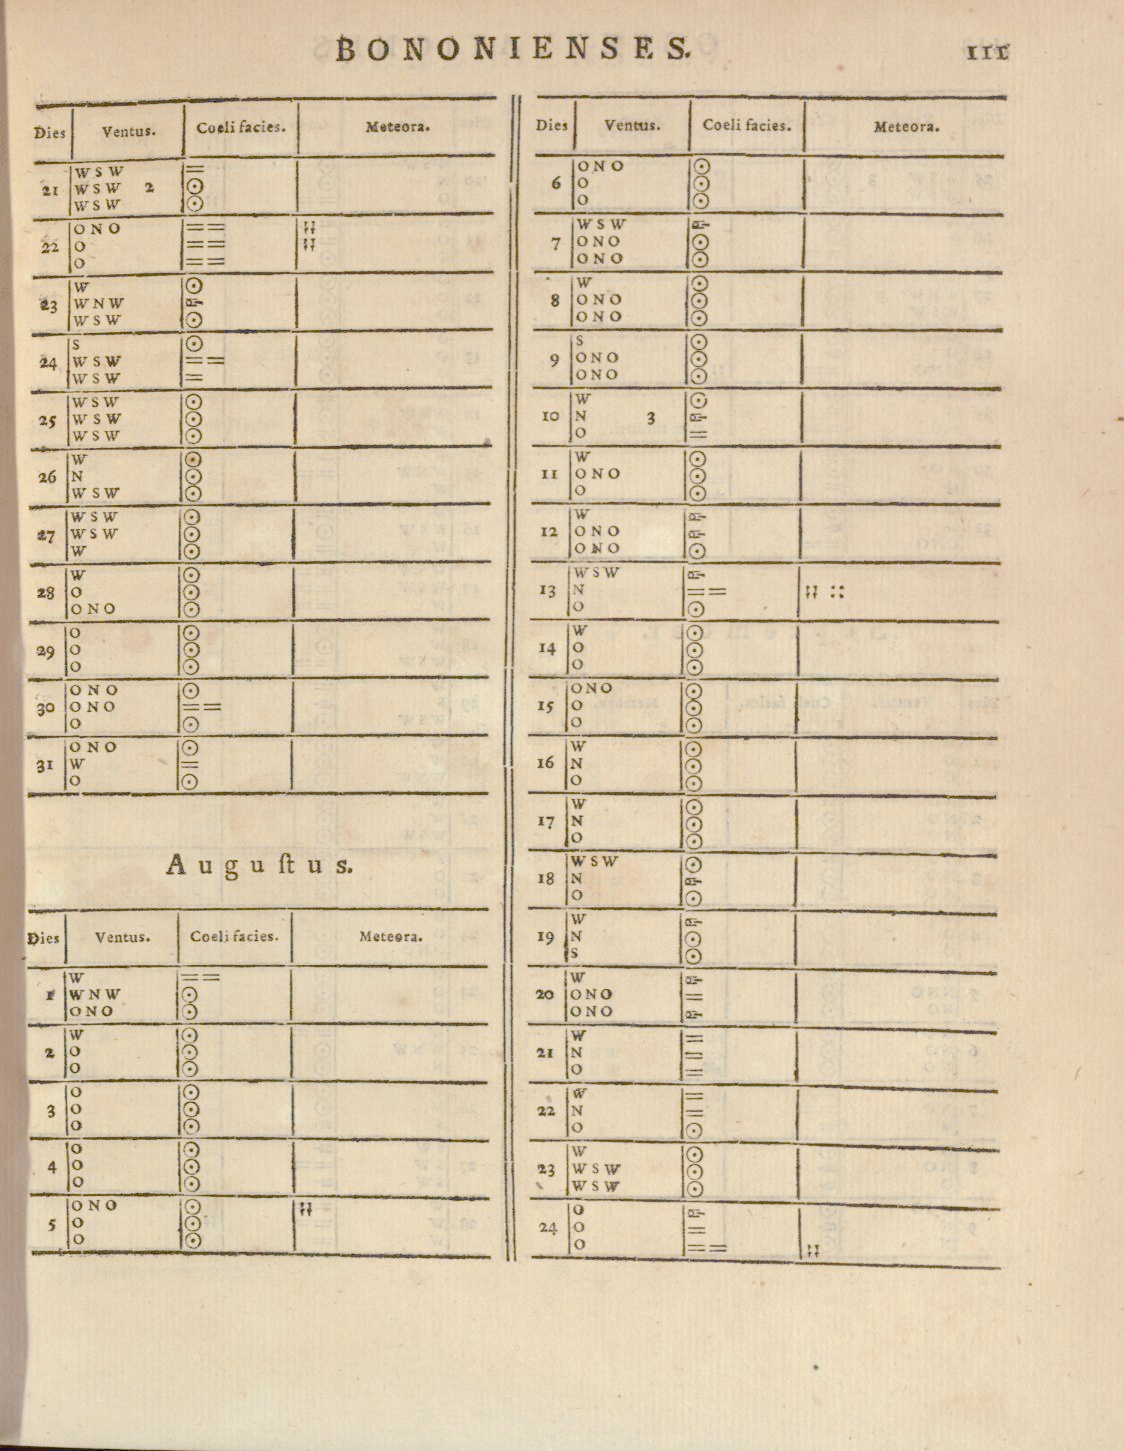 BONONIENSES. 111
Dies Ventus. Coeli facies. Meteora.
21 W S W =
W S W 2 ☉
W S W ☉
22 O N O == ¡¡
O == ¡¡
O ==
23 W ☉
W N W
W S W ☉
24 S ☉
W S W ==
W S W =
25 W S W ☉
W S W ☉
W S W ☉
26 W ☉
N ☉
W S W ☉
27 W S W ☉
W S W ☉
W ☉
28 W ☉
O ☉
O N O ☉
29 O ☉
O ☉
O ☉
30 O N O ☉
O N O ==
O ☉
31 O N O ☉
W =
O ☉
Auguſtus.
Dies Ventus. Coeli facies. Meteora.
1 W ==
W N W ☉
O N O ☉
2 W ☉
O ☉
O ☉
3 O ☉
O ☉
O ☉
4 O ☉
O ☉
O ☉
5 O N O ☉ ¡¡
O ☉
O ☉
Dies Ventus. Coeli facies. Meteora.
6 O N O ☉
O ☉
O ☉
7 W S W
O N O ☉
O N O ☉
8 W ☉
O N O ☉
O N O ☉
9 S ☉
O N O ☉
O N O ☉
10 W ☉
N 3
O =
11 W ☉
O N O ☉
O ☉
12 W
O N O
O N O ☉
13 W S W
N == ¡¡ ::
O ☉
14 W ☉
O ☉
O ☉
15 O N O ☉
O ☉
O ☉
16 W ☉
N ☉
O ☉
17 W ☉
N ☉
O ☉
18 W S W ☉
N
O ☉
19 W
N ☉
S ☉
20 W
O N O =
O N O
21 W =
N =
O =
22 W =
N =
O ☉
23 W ☉
W S W ☉
W S W ☉
24 O
O =
O == ¡¡